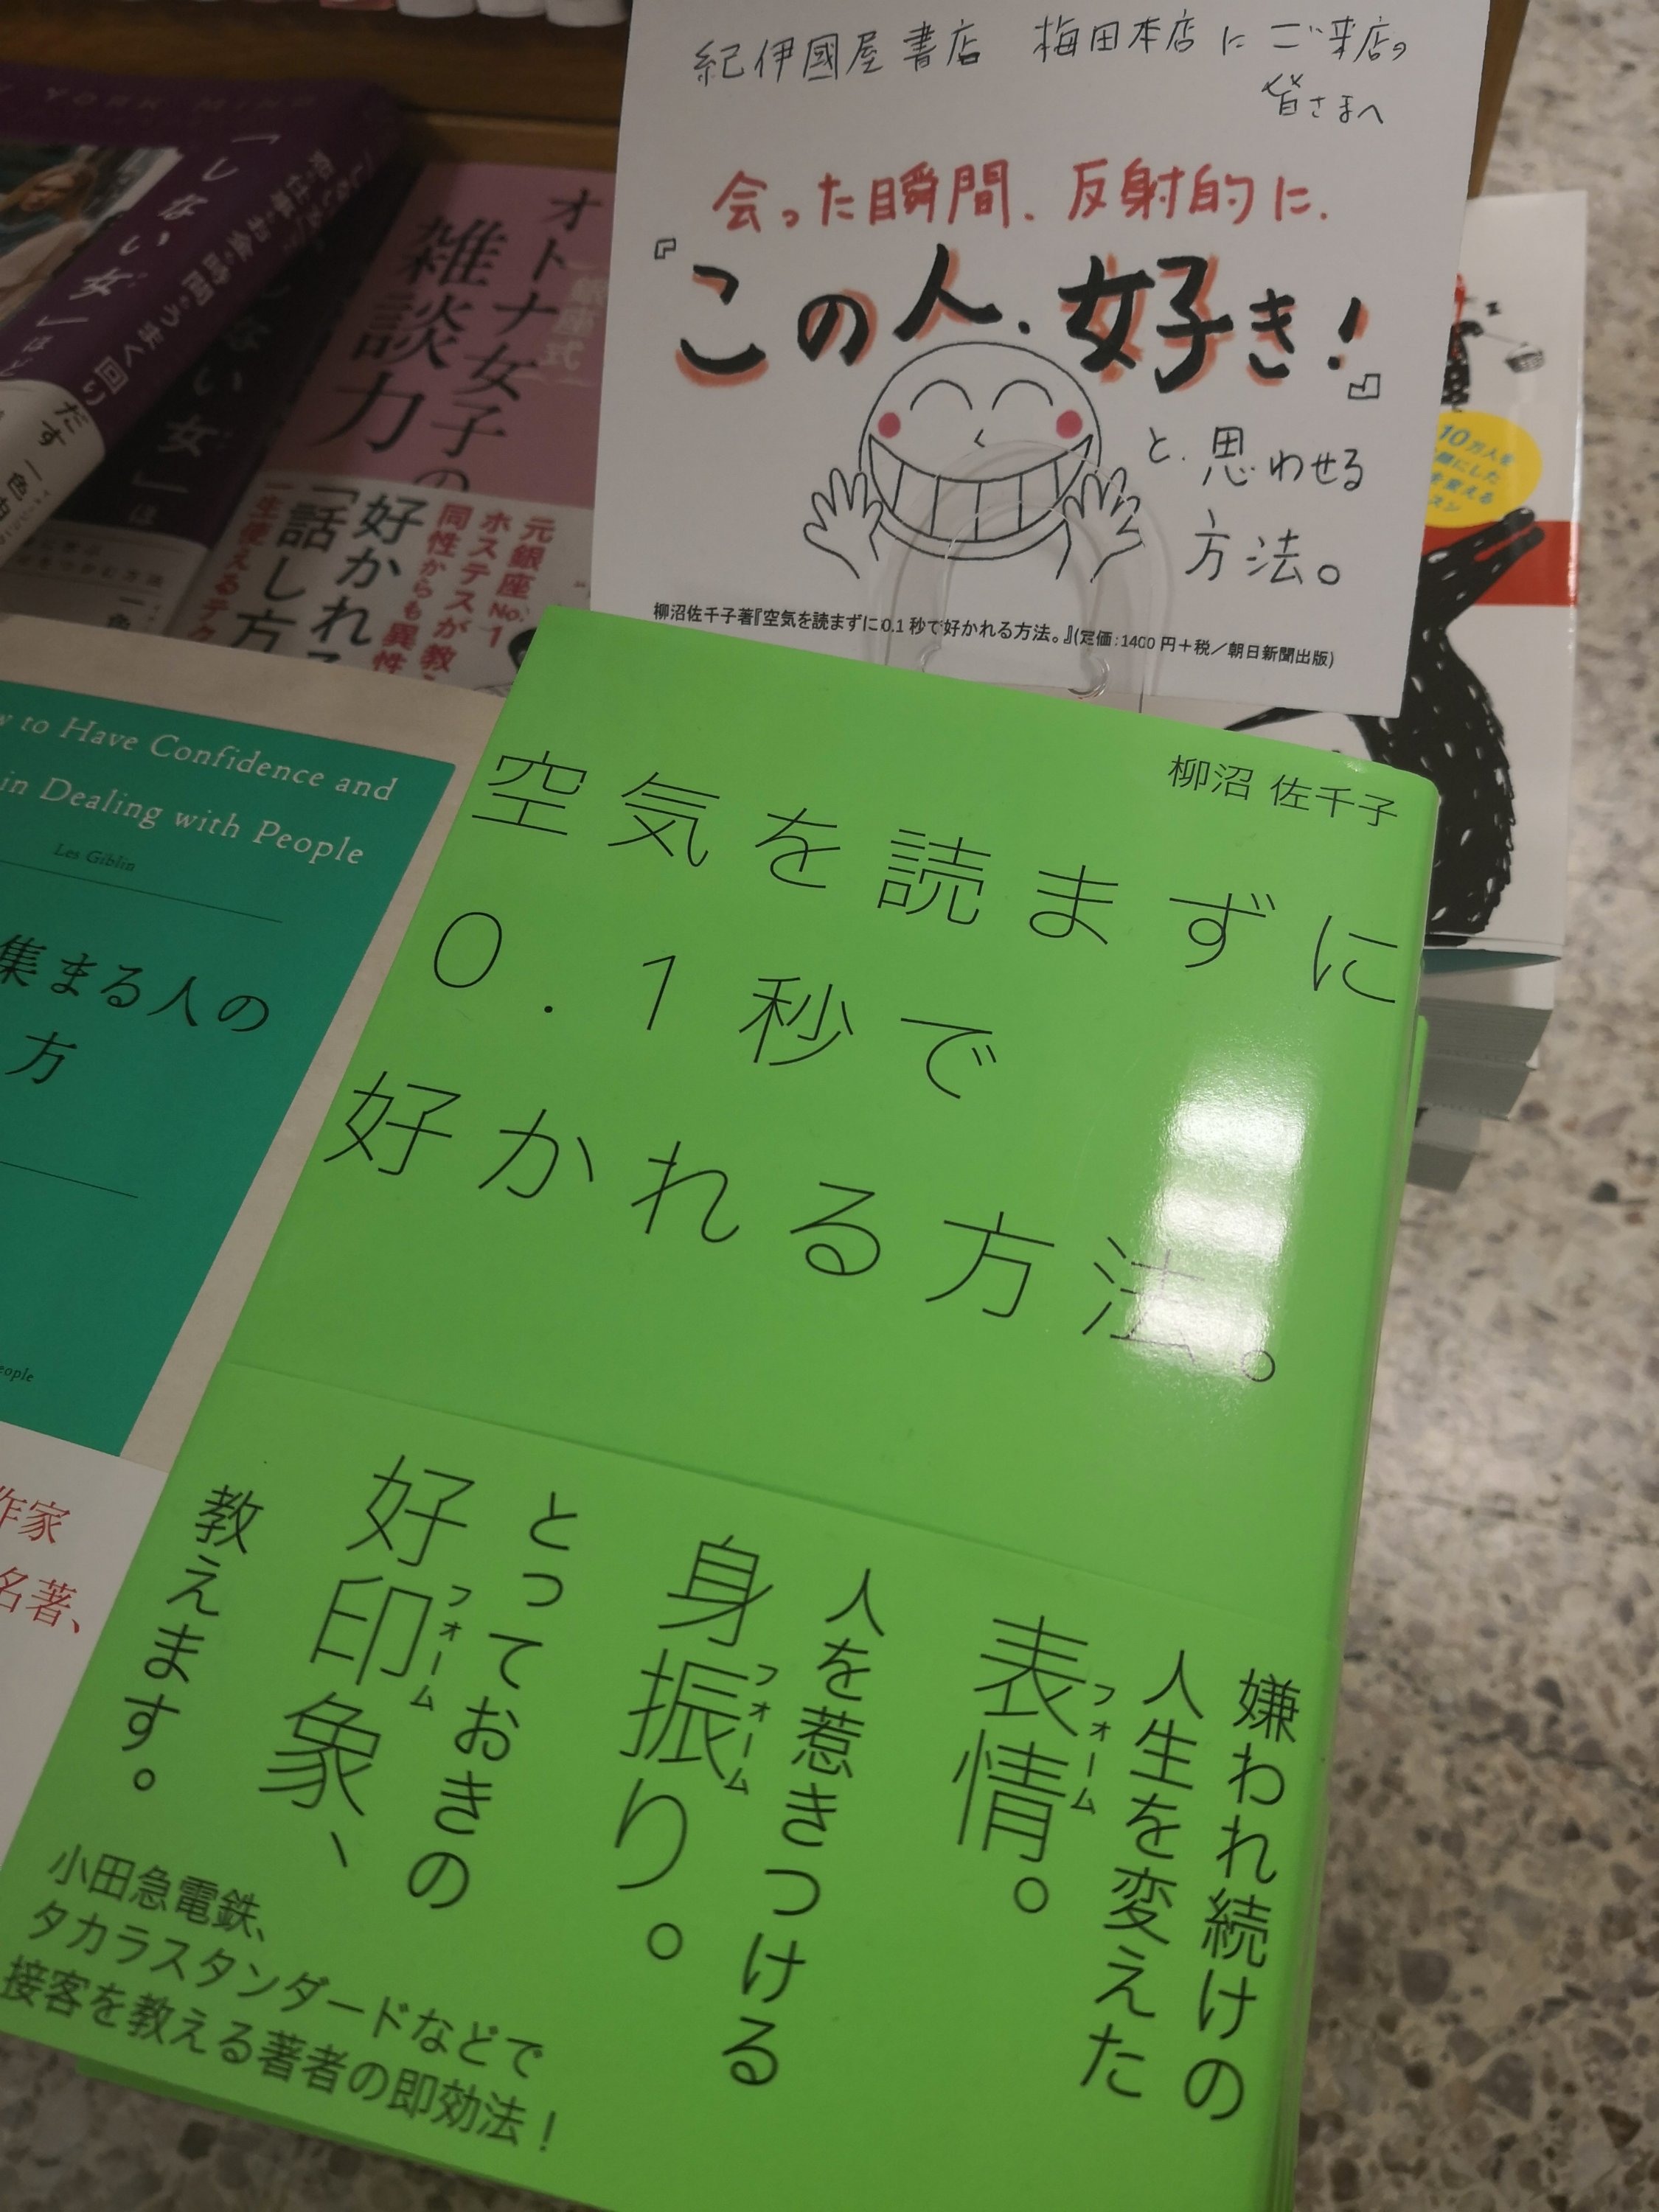 紀伊國屋書店 梅田本店にご来店の
皆さまへ
会った瞬間、反射的に、
『この人、好き!』
と、思わせる
方法。
柳沼佐千子著『空気を読まずに0.1秒で好かれる方法。』(定価:1400円+税/朝日新聞出版)
柳沼 佐千子
空気を読まずに
0.1秒で
好かれる方法。
嫌われ続けの
人生を変えた
表情。
フォーム
人を惹きつける
身振り。
フォーム
とっておきの
好印象、
フォーム
教えます。
小田急電鉄、
タカラスタンダードなどで
接客を教える著者の即効法!
オトナ女子の
雑談力
元銀座No.1
ホステスが教え
同性からも異性
好かれる
「話し方
一生使えるテク
YORK MIND
「しない女」は
to Have Confidence and
in Dealing with People
Les Giblin
集まる人の
方
作家
名著、
10万人を